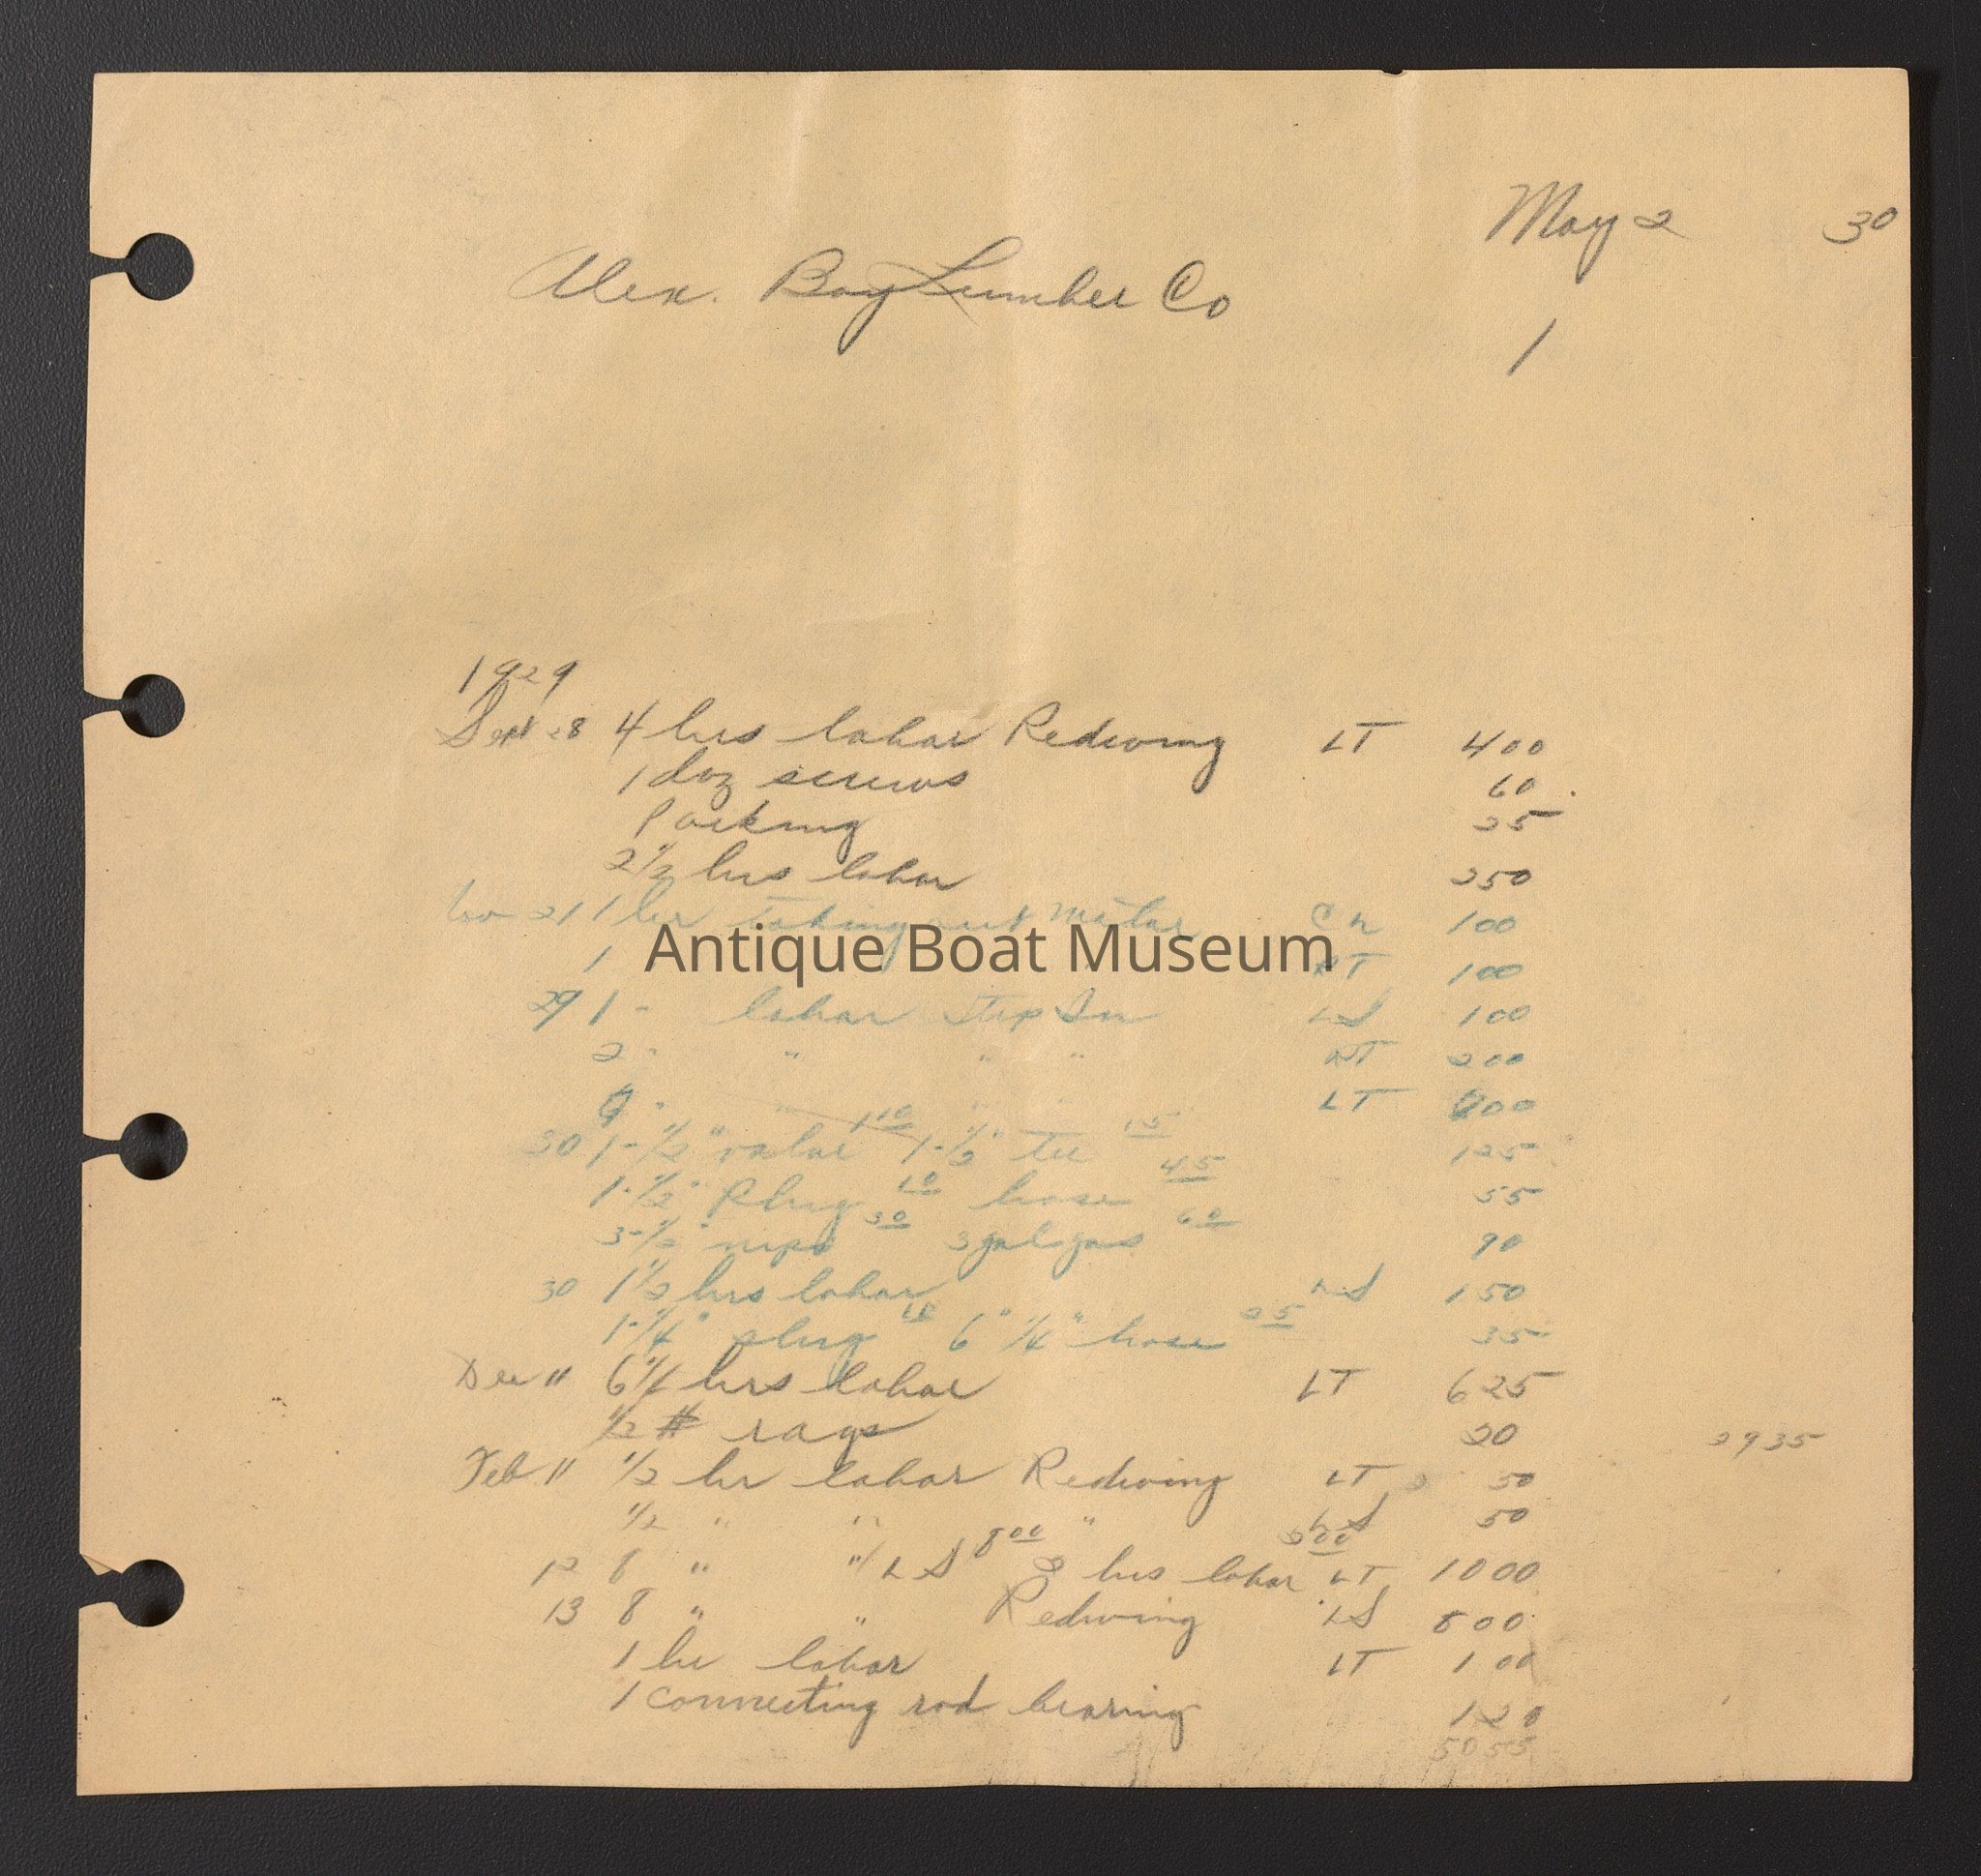 May 2 30
Alex. Bay Lumber Co
1
1929
Sept 28 4 hrs labar Redwing LT 400
1 doz screws 60
Packing 25
2 1/2 hrs labar 250
21 1 hr taking out Motar 100
Antique Boat Museum
1 100
29 1 " labar Step In LS 100
2 " " " " 200
" LT 00
1 10 15
30 1-1/2" valve 1-1/2" tee 125
10 45
1-1/2" Plug hose 55
30 60
3-1/2" nips 3 gal gas 90
30 1 1/2 hrs labar LS 150
10 25
1-1/4" plug 6" 1/4" hose 35
Dec 11 6 1/4 hrs labar LT 625
1/2 # rags 20 2935
Feb 11 1/2 hr labar Redwing LT 50
1/2 " " " LS 50
8 00 2 00
12 8 " " LS 2 hrs labar LT 1000
13 8 " " Redwing LS 800
1 hr labar LT 100
1 connecting rod bearing 120
5055